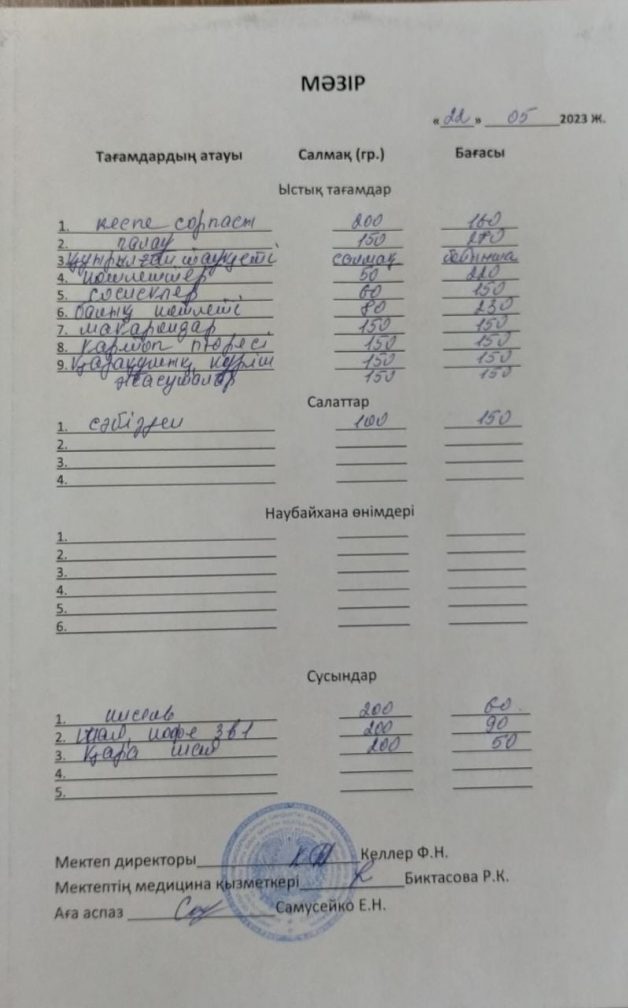 МӘЗІР
«22» 05 2023 ж.
Тағамдардың атауы Салмақ (гр.) Бағасы
Ыстық тағамдар
1. кеспе сорпасы 200 160
2. палау 150 270
3. қуырылған тауқеті салмақ бойынша
4. котлеттер 50 220
5. сосисклер 60 150
6. балық котлеті 80 230
7. макарондар 150 150
8. картоп пюресі 150 150
9. Қарақұмық, күріш 150 150
жасушалар 150 150
Салаттар
1. сәбізден 100 150
2.
3.
4.
Наубайхана өнімдері
1.
2.
3.
4.
5.
6.
Сусындар
1. кисель 200 60
2. шай, кофе 3в1 200 90
3. Қара шай 200 50
4.
5.
Мектеп директоры Келлер Ф.Н.
Мектептің медицина қызметкері Биктасова Р.К.
Аға аспаз Самусейко Е.Н.